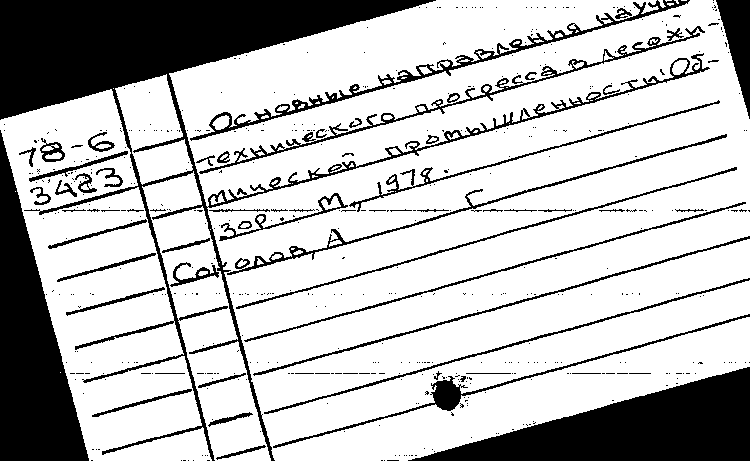 Основные направления научно-
78-6
технического прогресса в лесохи-
3423
мической промышленности: Об-
зор.. М., 1978.
Соколов, А Г